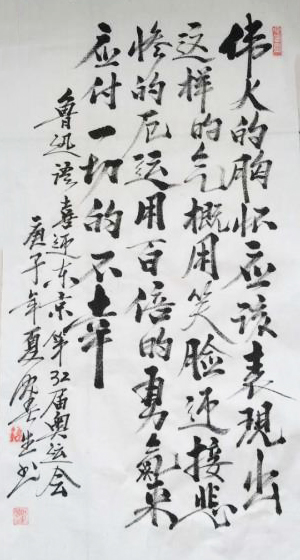 伟大的胸怀应该表现出
这样的气概用笑脸迎接悲
惨的厄运用百倍的勇气来
应付一切的不幸
鲁迅语喜迎东京第32届奥运会
庚子年夏 生书